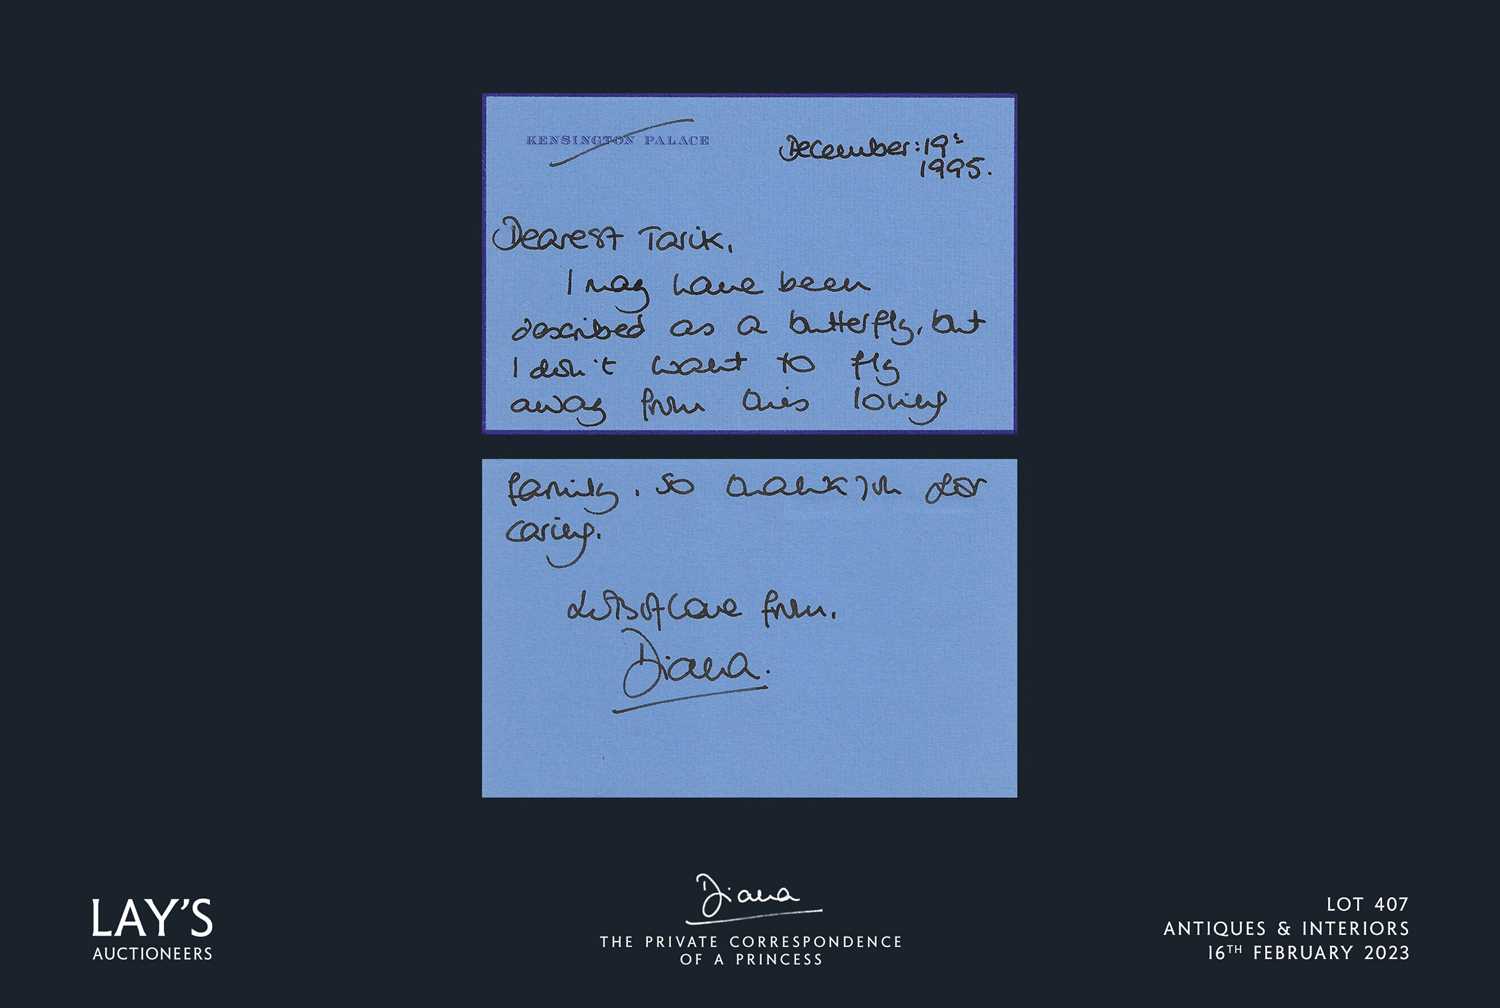 KENSINGTON PALACE
December: 19th
1995.
Dearest Tarik,
I may have been
described as a butterfly, but
I don't want to fly
away from this loving
family. so thank you for
caring.
Lots of love from,
Diana.
LAY'S
AUCTIONEERS
Diana
THE PRIVATE CORRESPONDENCE
OF A PRINCESS
LOT 407
ANTIQUES & INTERIORS
16TH FEBRUARY 2023